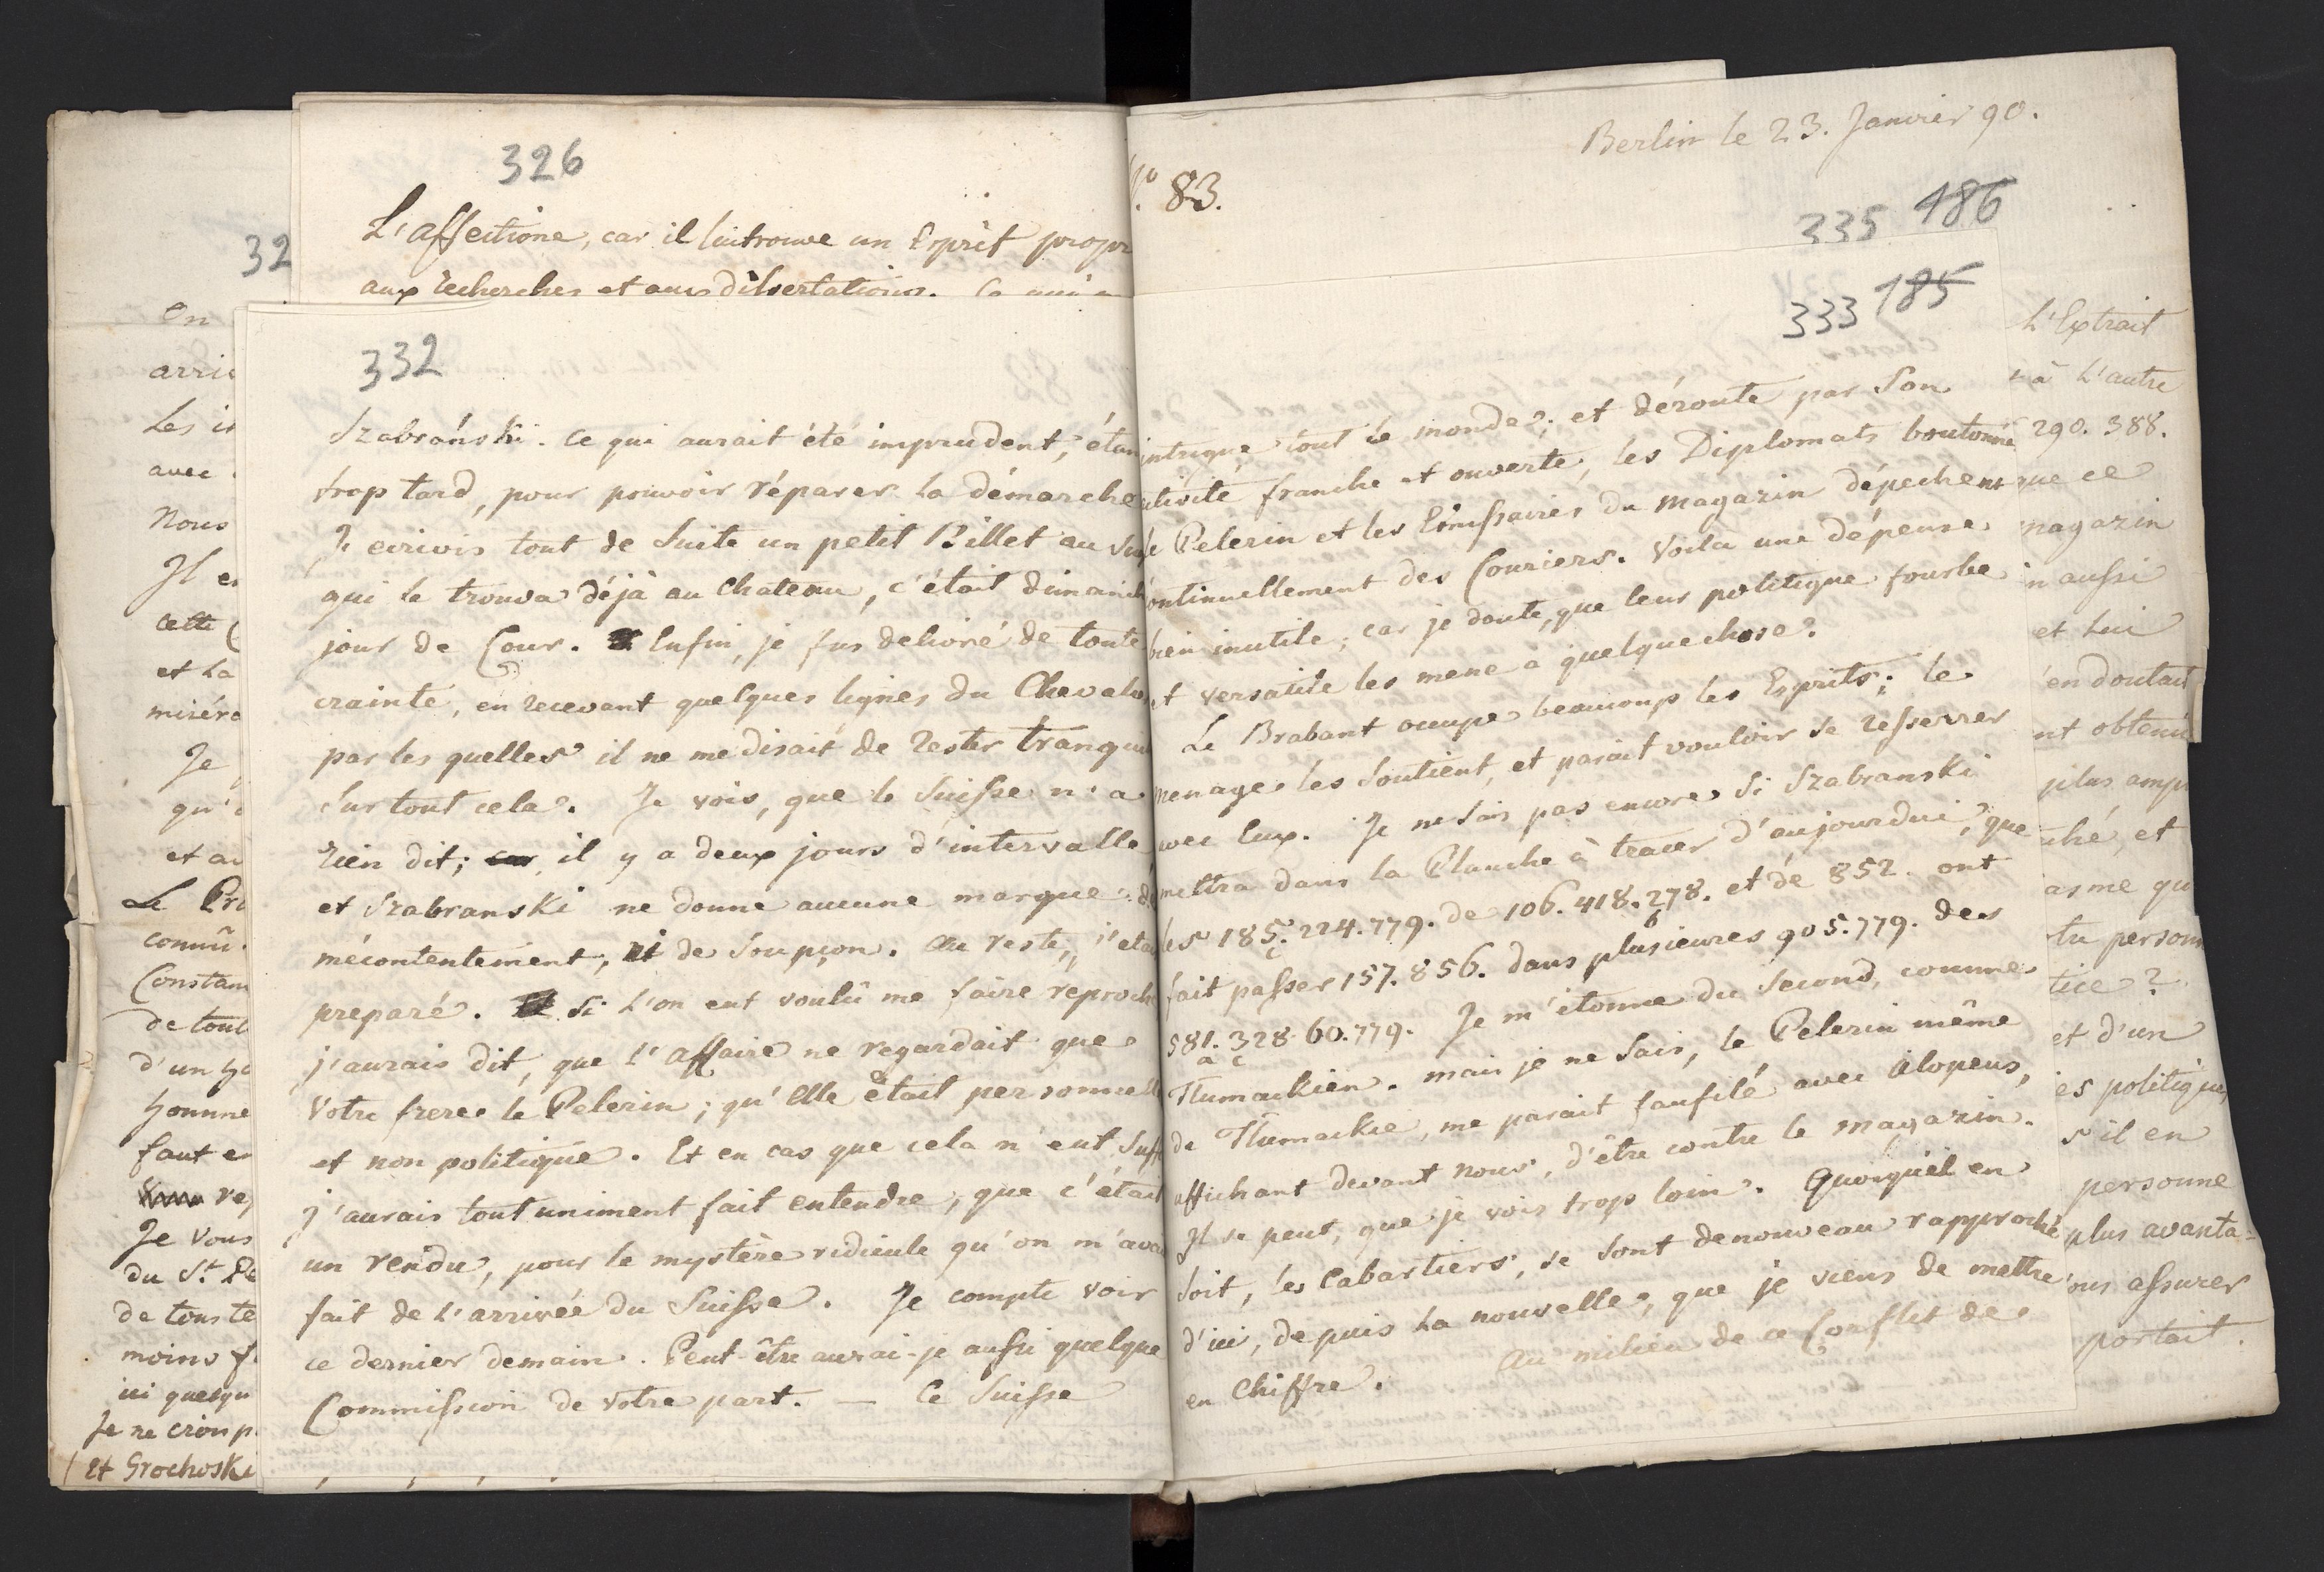 32
En
arri
Les i
avec
Nous
Il e
cette
et La
miséra
Je
qu'
et a
Le Pr
connû
Constan
de tout
d'un h
homme
faut e
re
Je vous
du St. Pe
de tous te
moins f
ici quelqu
Je ne crois p
et Grochoski
326
L'affectione, car il lui trouve un Esprit propr
aux recherches et aux dissertations. Ce qui
332
Szabrański. Ce qui aurait été imprudent, étan
trop tard, pour pouvoir réparer la démarche
J'écrivis tout de Suite un petit Billet au Sui
qui le trouva déjà au Chateau, c'était dimanch
jour de Cour. Enfin, je fus delivré de toute
crainte, en recevant quelques lignes du Chevali
par les quelles il ne me disait de Rester tranqui
Sur tout cela. Je vois, que le Suisse n'a
rien dit; car, il y a deux jours d'intervalle
et Szabranski ne donne aucune marque de
mécontentement, ni de Soupçon. Au reste, j'étai
preparé. Si L'on eut voulû me faire reproch
j'aurais dit, que l'Affaire ne regardait que
Votre frere le Pelerin; qu'Elle était personnell
et non politique. Et en cas que cela n'eut Suff
j'aurais tout uniment fait entendre, que c'était
un rendu, pour le mystère ridicule qu'on m'avai
fait de L'arrivée du Suisse. Je compte voir
ce dernier demain. Peut-être aurai-je aussi quelque
Commission de votre part. — Ce Suisse
Berlin le 23. Janvier 90.
No. 83.
335 486
333 185
intrigue tout le monde; et déroute par Son
utisité franche et ouverte, les Diplomats boutonné
le Pelerin et les Emissaires du Magazin dépechent
continuellement des Couriers. Voila une dépense
bien inutile; car je doute, que leur politique fourbe
et versatile les mene à quelque chose.
Le Brabant occupe beaucoup les Esprits; le
menage les Soutient, et parait vouloir se resserrer
avec Eux. Je ne Sais pas encore Si Szabranski
mettra dans la Planche à tracer d'aujourdui, que
les 185. 224. 779. de 106. 418. 278. et de 852. ont
c b
fait passer 157. 856. dans plusieures 905. 779. des
581. 328. 60. 779. Je m'étonne du Second, comme
a c
Tlumackien. mais je ne Sais, le Pelerin même
de Tlumackie, me parait faufilé avec Alopeus,
affichant devant nous, d'être contre le magazin.
Il se peut, que je vois trop loin. Quoiqu'il en
Soit, les Cabartiers, se Sont denouveau rapproché
d'ici, depuis La nouvelle, que je viens de mettre
en Chiffre. Au milieu de ce Conflit de
L'Extrait
à L'autre
290. 388.
que ce
magazin
n aussi
et Lui
'en doutait
nt obtenu
plus amp
ché, et
asme qu
tu person
tice?
et d'un
es politiqu
s'il en
personne
plus avanta=
ous assurer
portait.